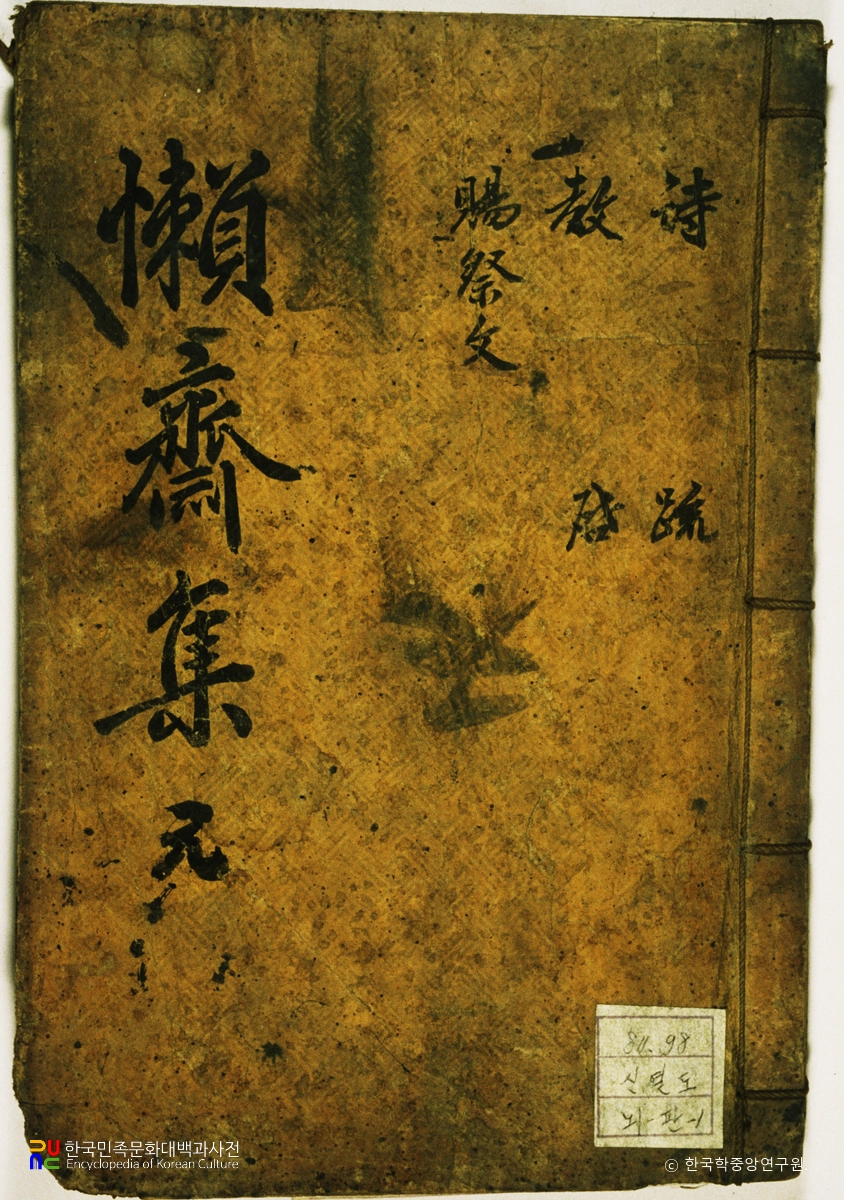 詩 疏
教 啓
賜祭文
懶齋集 元
811.98
신열도
뇌-판-1
한국민족문화대백과사전
Encyclopedia of Korean Culture
© 한국학중앙연구원